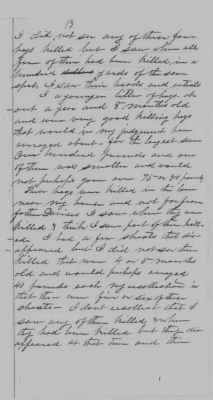 13
I did not see any of these four
hogs killed but I saw where all
four of them had been killed in a
hundred yards of the same
spot. I saw their heads and entrails
a younger litter of hogs ab
out a year and 8 months old
and were very good killing hogs
that would in my judgment have
averaged about for the largest some
One hundred pounds and one
of them was smaller and would
not perhaps over 75 or 80 pounds
These hogs were killed in the lane
near my house and not far from
father I saw where they were
killed & think I saw part of them kill-
ed. I had a few shoats that dis-
appeared but I did not see them
killed that were 4 or 5 months
old and would perhaps averaged
40 pounds each my recollection is
that there were five or six of these
shoats. I dont recollect that I
saw any of them killed & where
they had been killed but they dis-
appeared at that time and there